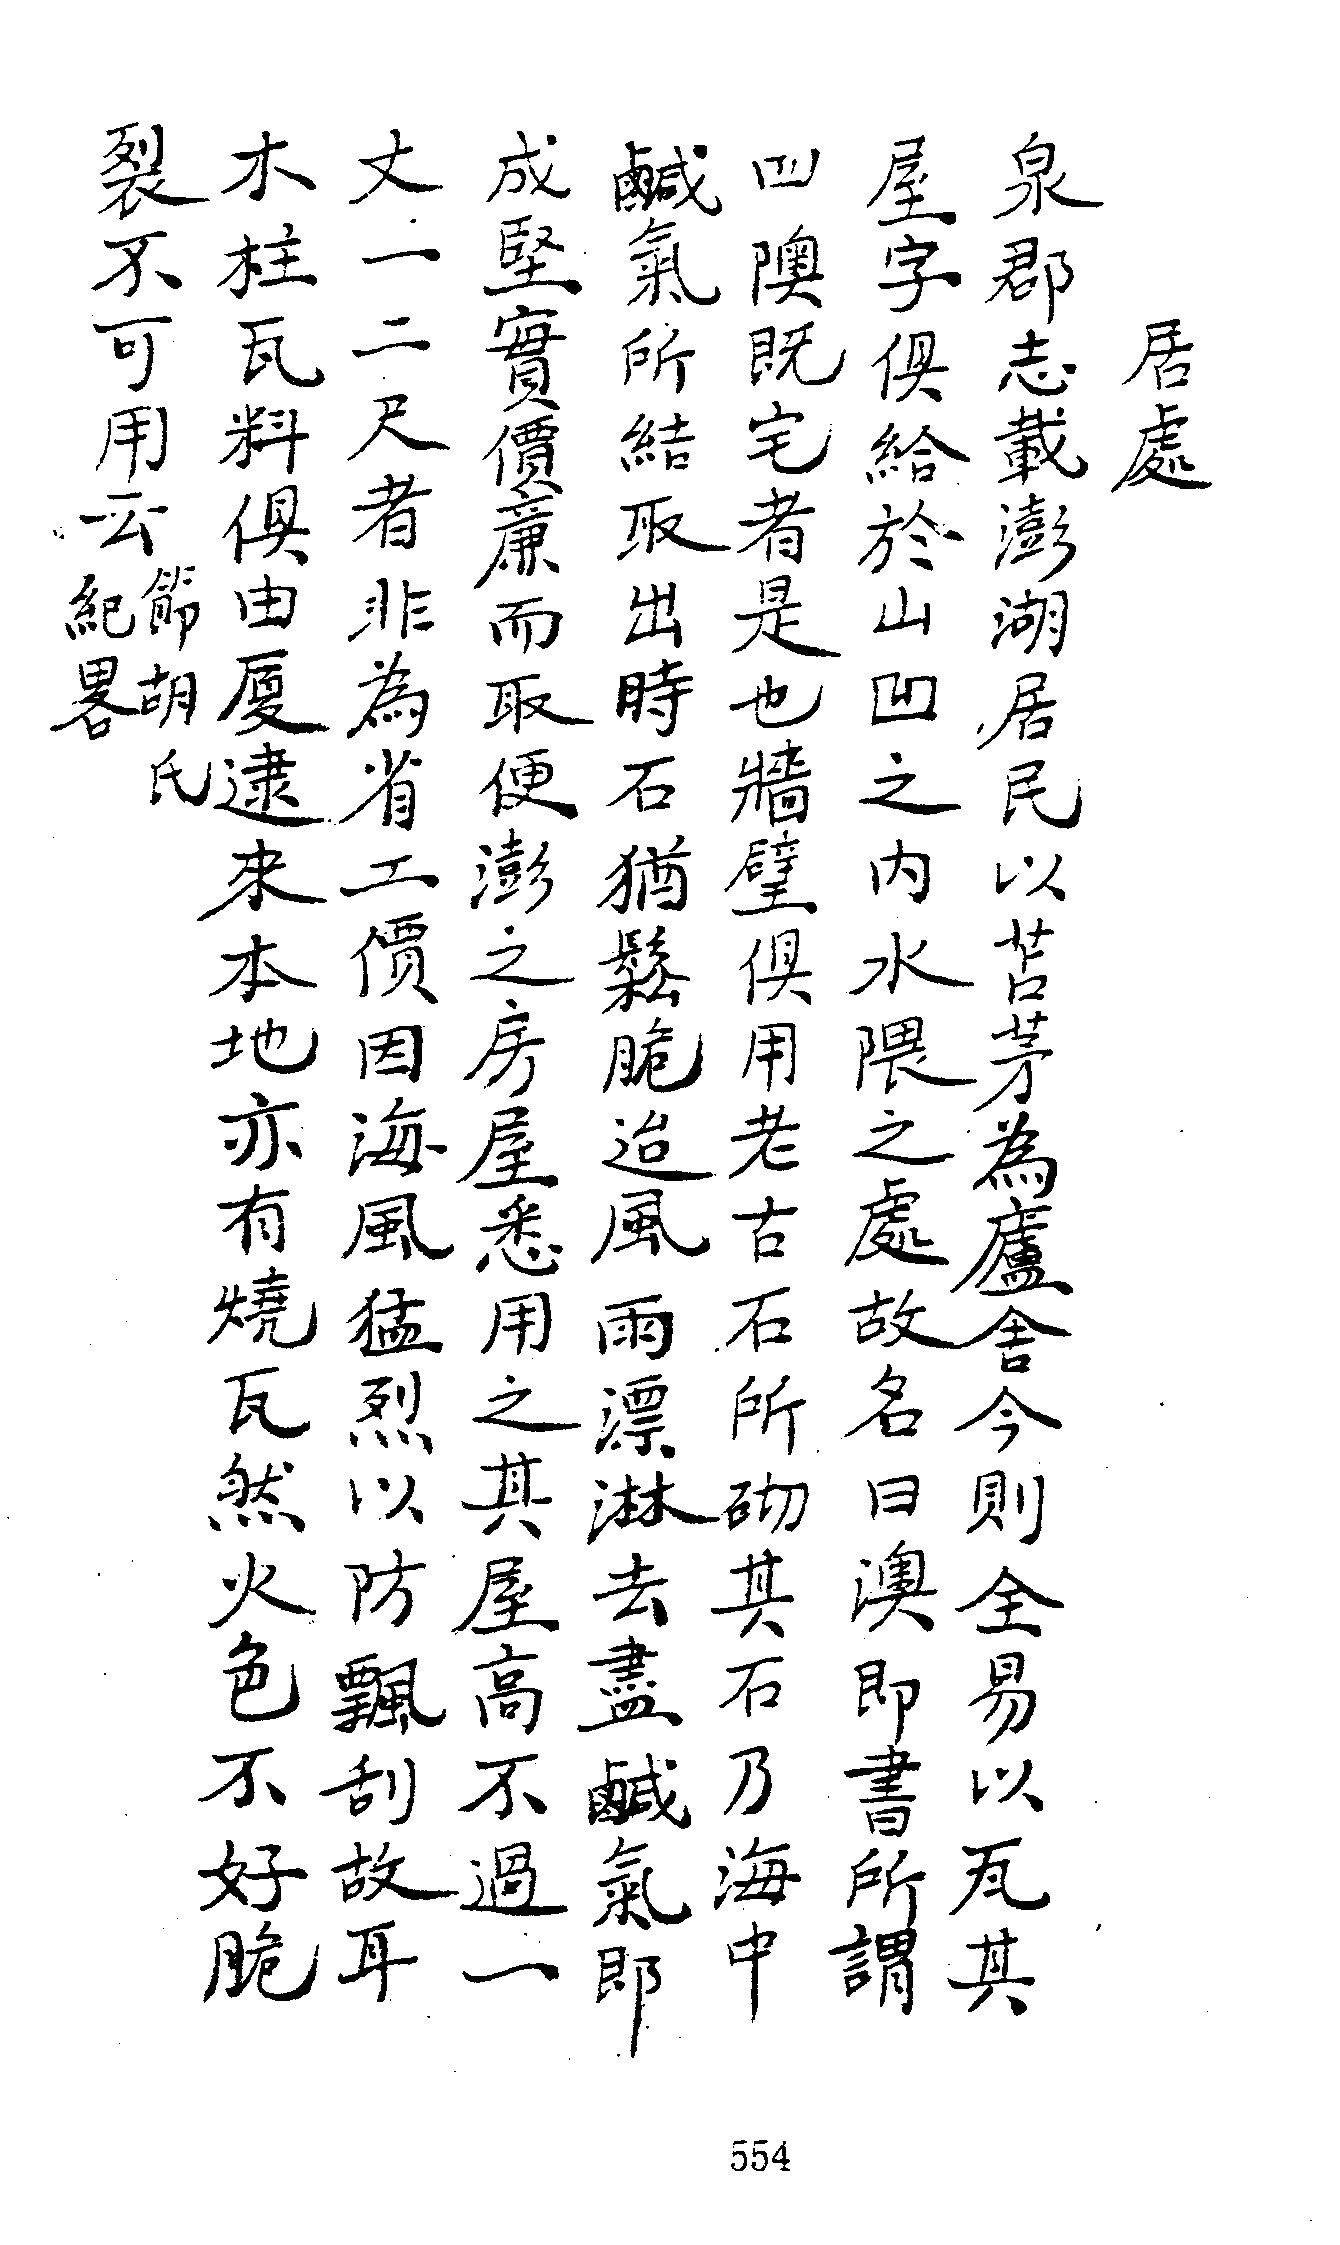 居處
泉郡志載澎湖居民以苫茅為廬舍今則全易以瓦其
屋字俱給於山凹之内水隈之處故名曰澳即書所謂
凹隩既宅者是也牆壁俱用老古石所砌其石乃海中
鹹氣所結取出時石猶鬆脆迨風雨漂淋去盡鹹氣即
成堅實價廉而取便澎之房屋悉用之其屋高不過一
丈一二尺者非為省工價因海風猛烈以防飄刮故耳
木柱瓦料俱由厦逮來本地亦有燒瓦然火色不好脆
裂不可用云
節胡氏
紀畧
554